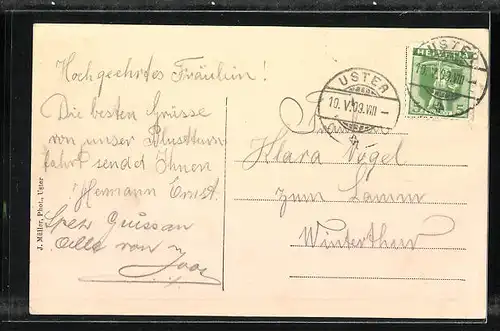 Hochgeehrtes Fräulein!
Die besten Grüsse
von unser
fahrt sendet Ihnen
Hermann Ernst.
Spez Gruss an
Alle von
J. Müller, Phot., Uster
USTER
10. V. 09. VIII –
USTER
10. V. 09. VIII –
HELVETIA
5
Klara Vogel
zum Lamm
Winterthur